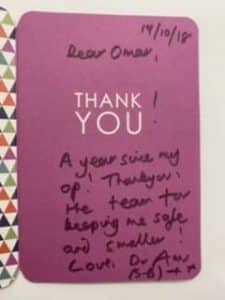 14/10/18
Dear Omar,
THANK !
YOU
A year since my
op! Thankyou!
the team for
keeping me safe
and smaller!
Love, Dr